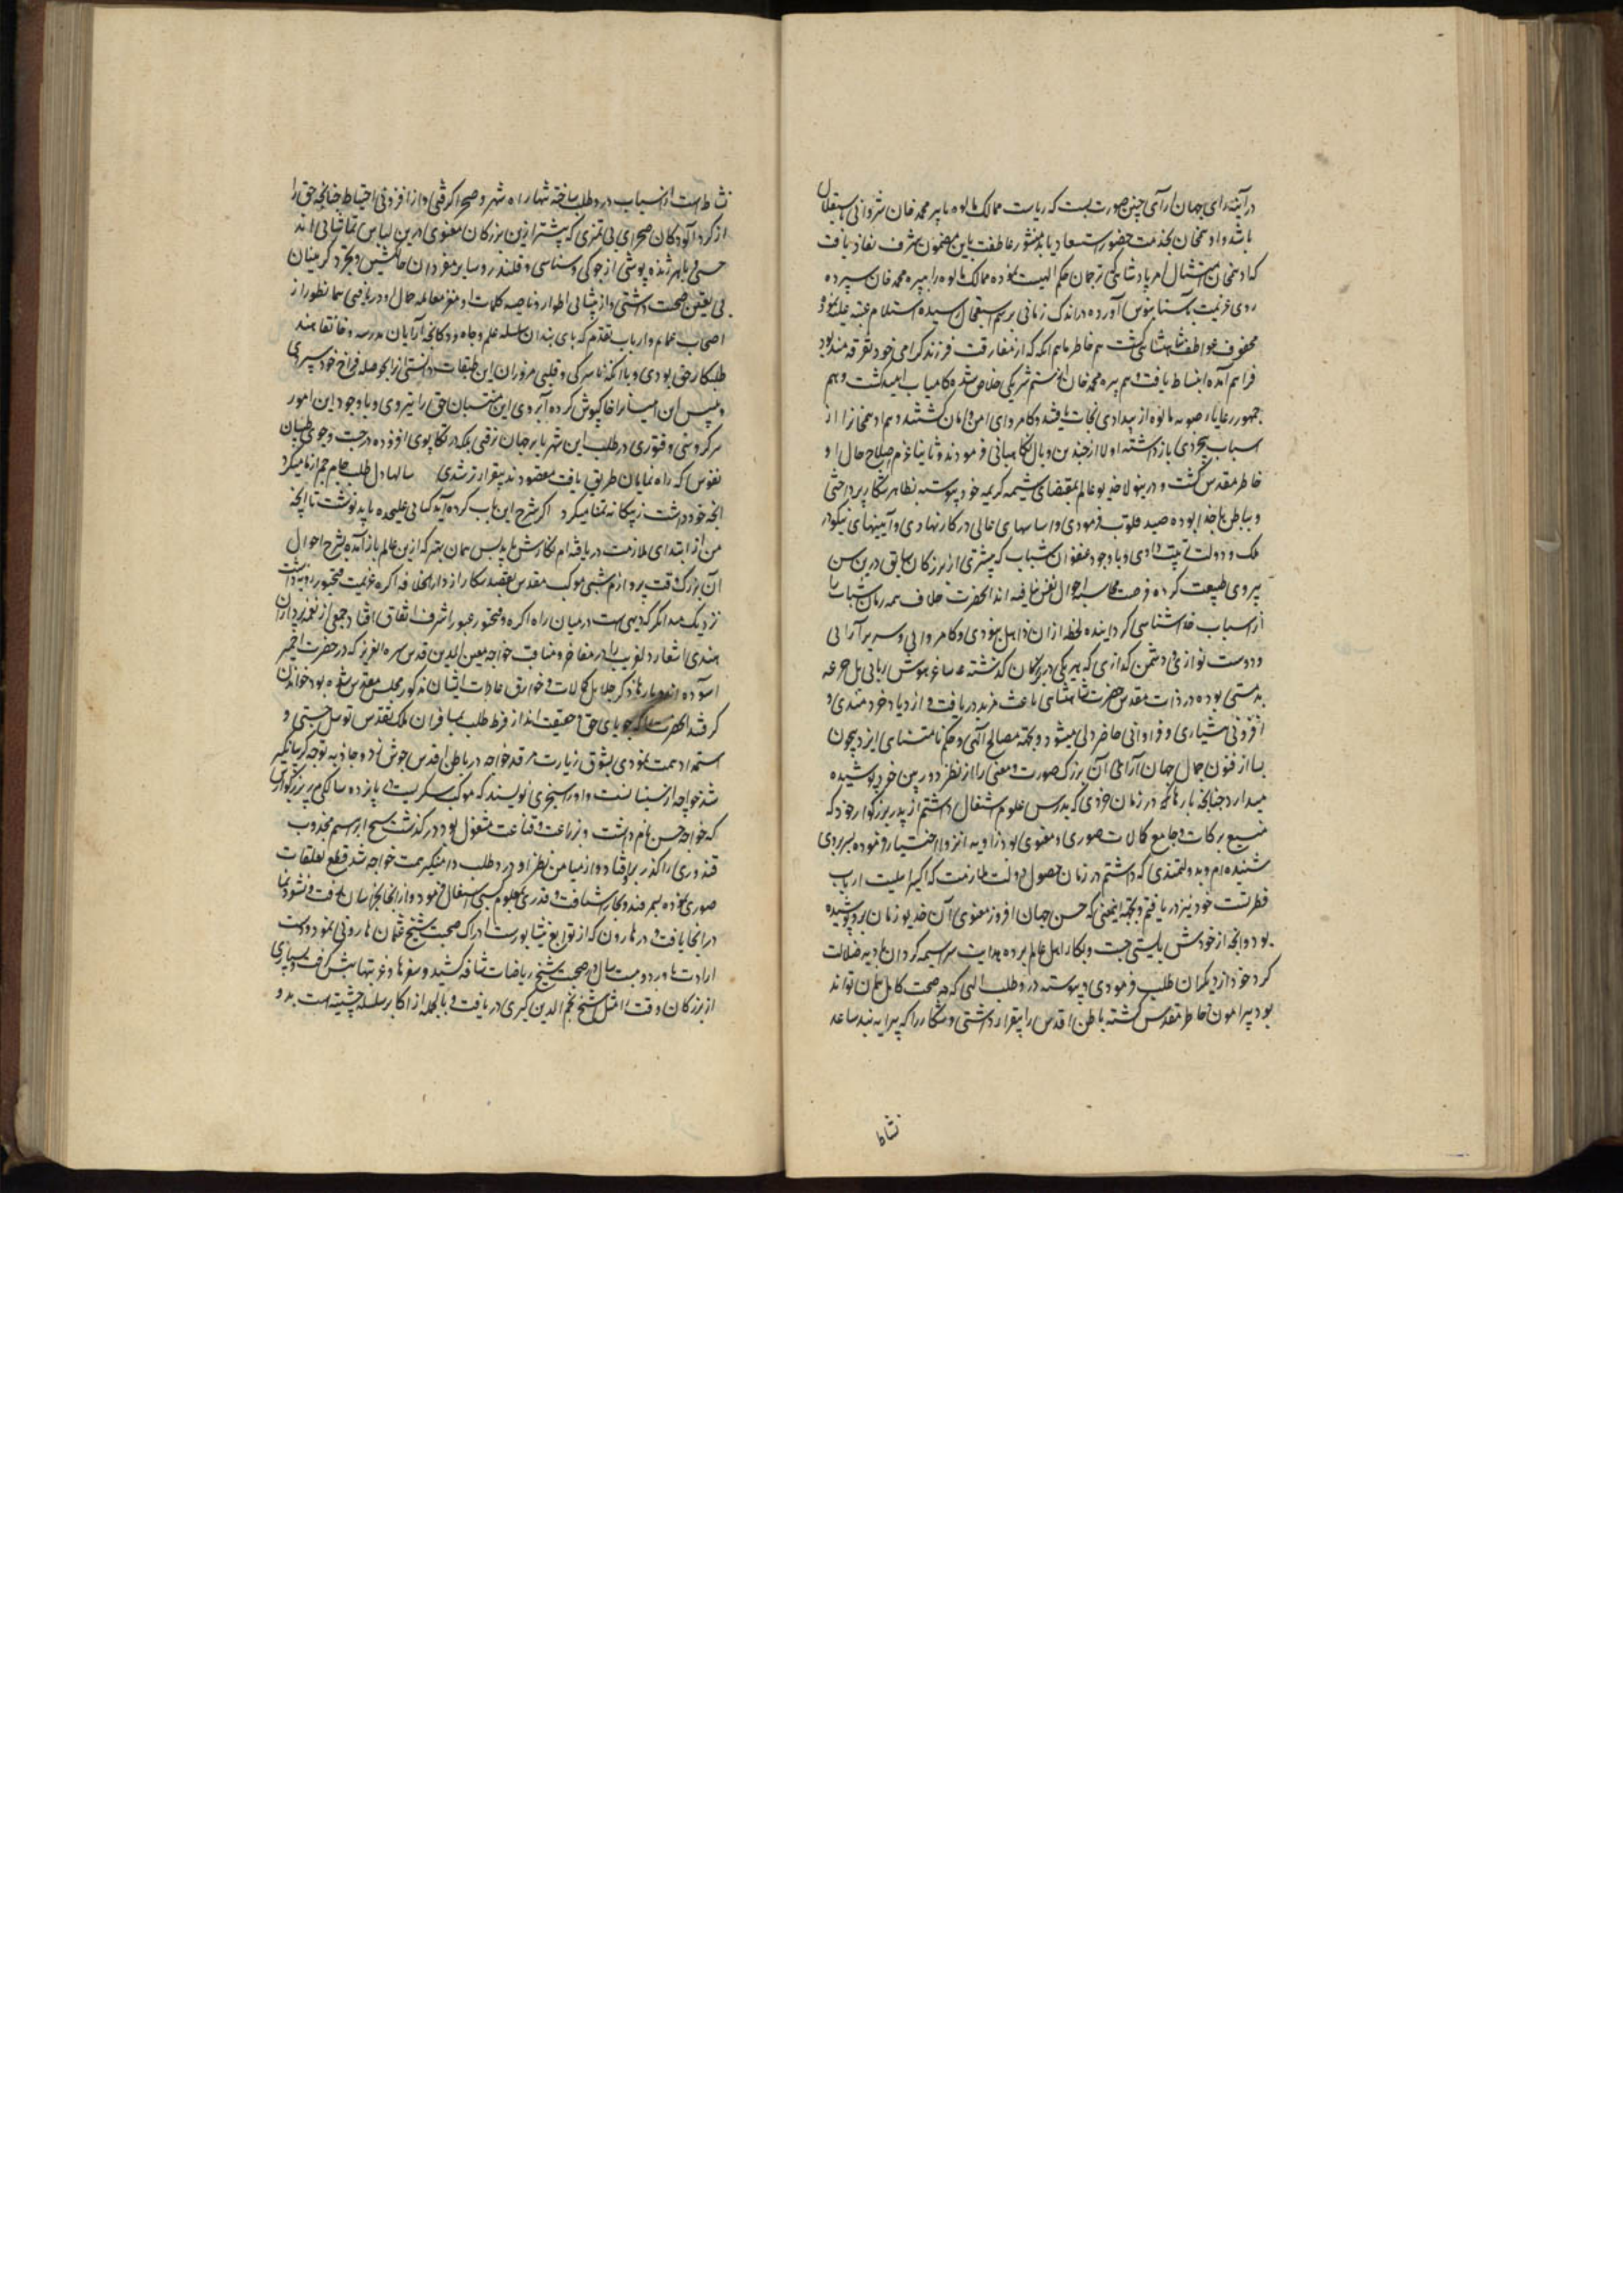 در آینه رای جهان آرای چنین صورت بست که ریاست ممالک مالوه با پیر محمد خان شروانی باستقلال
باشد و ادهم خان بخدمت حضور استسعاد یابد منشور عاطفت باین مضمون شرف نفاذ یافت
که ادهم خان امتثال امر پادشاهی که ترجمان حکم الهیست نموده ممالک مالوه را به پیر محمد خان سپرده
روی عزیمت بآستانبوس آورده در اندک زمانی برسم استعجال رسیده استلام عتبه علیه نمود و
محفوف عواطف شاهنشاهی گشت هم خاطر ماهم انکه که از مفارقت فرزند گرامی خود تفرقه مند بود
فراهم آمده انبساط یافت و هم پیر محمد خان از ستم شریکی خلاص شده کامیاب امید گشت و هم
جمهور رعایای صوبه مالوه از بیدادی نجات یافتند و کامروای امن و امان گشتند و هم ادهم خانرا از
اسباب بیخودی بازداشته اولا از چندین وبال نگاهبانی فرمودند و ثانیا عزم اصلاح حال او
خاطر مقدس گشت و درینولا خدیو عالم بمقتضای شیمه کریمه خود پیوسته بظاهر بشکار پرداختی
و بباطن باخدا بوده صید قلوب فرمودی و اساسهای عالی در کار نهادی و آیینهای نیکو در
ملک و دولت ترتیب دادی و با وجود عنفوان شباب که بیشتری از بزرگان سابق درین سن
پیروی طبیعت کرده فرصت محاسبه احوال نفس نیافته اند آنحضرت خلاف همه زمان شباب را
از اسباب خداشناسی گردانیده لحظه از ان ذاهل نبودی و کامروایی و سریر آرایی
و دوست نوازی و دشمن گدازی که هر یکی در بزرگان گذشته ساغر هوش ربایی بل جرعه
بدمستی بوده در ذات مقدس حضرت شاهنشاهی باعث مزید دریافت و ازدیاد خردمندی و
افزونی هشیاری و فراوانی حاضر دلی میشود و بجهت مصالح الهی و حکم نامتناهی ایزد بیچون
بسا از فنون جمال جهان آرای آن بزرگ صورت و معنی را از نظر دوربین خرد پوشیده
میدارد چنانچه بارها که در زمان خردی که بدرس علوم اشتغال داشتم از پدر بزرگوار خود که
منبع برکات و جامع کمالات صوری و معنوی بود و زاویه انزوا اختیار فرموده بسر بردی
شنیده ام و بدولتمندی که داشتم در زمان حصول دولت ملازمت که اکسیر اهلیت ارباب
فطرتست خود نیز دریافتم و بجهت اینمعنی که حسن جهان افروز معنوی آن خدیو زمان برو پوشیده
بود و آنچه از خودش بایستی جست و بکار اهل عالم برده هدایت سراسیمه گردان بادیه ضلالت
کرد خود از دیگران طلب فرمودی و پیوسته در طلب الهی که چه صحبت کامل همان تواند
بود پیرامون خاطر مقدس گشته باطن اقدس را بیقرار داشتی و شکار را که پیرایه بند ساعد
نشاط
نشاط است از اسباب درد طلب ساخته تنها راه شهر و صحرا گرفتی و از افزونی احتیاط چنانچه حق را
از گرد آلودگان صحرای بی تمیزی که بیشتر ازین بزرگان معنوی درین لباس تماشایی اند
جستی با هر ژنده پوشی از جوگی و سناسی و قلندر و سایر منفردان خاکنشین و تجرد گزینان
بی یقین صحبت داشتی و از پیشانی اطوار و ناصیه کلمات او مغز معامله حال او دریافتی همانطور از
اصحاب عمایم و ارباب تقدم که پای بندان سلسله علم و جاه و دوکانچه آرایان مدرسه و خانقاهند
طلبکار حق بودی و با آنکه ناسرگی و قلبی مزوران این طبقات دانستی از حوصله فراخ خود سپردی
و پس این امینا را خاکپوش کرده آبروی این منتسبان حق را نبردی و با وجود این امور
هرگز وهنی و فتوری در طلب این شهریار برجهان نرفتی بلکه در تکاپوی افزوده در جست و جوی طبیبان
نفوس که راه نمایان طریق یافت مقصودند بیقرارتر شدی سالها دل طلب جام جم از ما میکرد
آنچه خود داشت ز بیگانه تمنا میکرد اگر شرح این باب کرده آید کتابی علیحده باید نوشت تا آنچه
من از ابتدای ملازمت دریافته ام نگارش یابد پس همان بهتر که ازین عالم باز آمده بشرح احوال
آن بزرگ وقت پردازم شبی موکب مقدس بقصد شکار از دار الخلافه اکره عزیمت فتحپور روبه داشت
نزدیک منداکر که دیهی است در میان راه اکره و فتحپور عبور اشرف اتفاق افتاد و جمعی از نغمه پردازان
هندی اشعار دلفریب را در مفاخر و مناقب خواجه معین الدین قدس سره العزیز که در حضرت اجمیر
آسوده اند و بارها ذکر جلایل کمالات و خوارق عادات ایشان مذکور مجلس مقدس شده بود خواندن
گرفتند آنحضرت که جویای حق و حقیقت اند از فرط طلب بمسافران ملک تقدس توسل جستی و
استمداد همت نمودی بشوق زیارت مرقد خواجه در باطن اقدس جوش زد و جاذبه توجه گریبانگیر
شد خواجه از سیستانست و او را سجزی نویسند که معرب سگزیست پانزده سالگی پدر بزرگوارش
که خواجه حسن نام داشت و بزراعت و قناعت مشغول بود درگذشت شیخ ابراهیم مجذوب
قندوزی را گذر برو افتاد و از میامن نظر او درد طلب دامنگیر همت خواجه شد قطع تعلقات
صوری نموده بسمرقند و بخارا شتافت و قدری بعلوم رسمی اشتغال فرمود و از آنجا بخراسان رفت و نشو و نما
در آنجا یافت و در هارون که از توابع نیشابورست ادراک صحبت شیخ عثمان هارونی نمود و دست
ارادت باو برد و بیست سال در صحبت شیخ ریاضات شاقه کشید و سفرها و غربتها پیش گرفت و بسیاری
از بزرگان وقت را مثل شیخ نجم الدین کبری دریافت و بالجمله از اکابر سلسله چشتیه است بدو